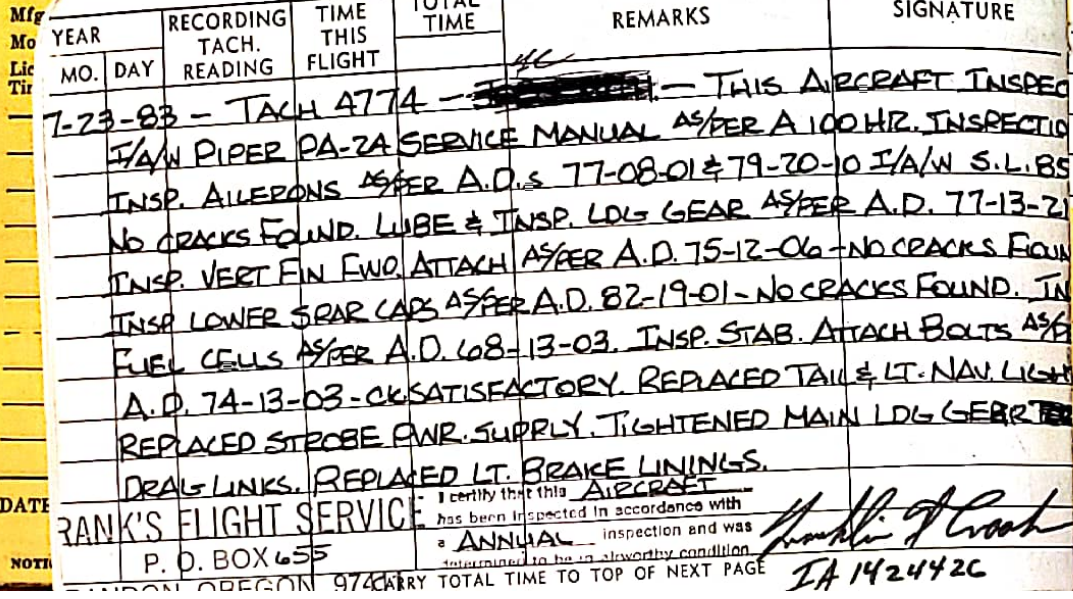 Mfg
Mo
Lic
Tin
YEAR
MO. DAY
RECORDING
TACH.
READING
TIME
THIS
FLIGHT
TOTAL
TIME
REMARKS
SIGNATURE
7-23-83 - TACH 4774 - - THIS AIRCRAFT INSPEC
I/A/W PIPER PA-24 SERVICE MANUAL AS/PER A 100 HR. INSPECTIO
INSP. AILERONS AS/PER A.D.s 77-08-01 & 79-20-10 I/A/W S.L. 85
NO CRACKS FOUND. LUBE & INSP. LDG GEAR AS/PER A.D. 77-13-21
INSP. VERT FIN FWD. ATTACH AS/PER A.D. 75-12-06 - NO CRACKS FOUN
INSP LOWER SPAR CAPS AS/PER A.D. 82-19-01 - NO CRACKS FOUND. IN
FUEL CELLS AS/PER A.D. 68-13-03. INSP. STAB. ATTACH BOLTS AS/P
A.D. 74-13-03 - CK SATISFACTORY. REPLACED TAIL & LT. NAV. LIGH
REPLACED STROBE PWR. SUPPLY. TIGHTENED MAIN LDG GEAR
DRAG LINKS. REPLACED LT. BRAKE LININGS.
DATE
RANK'S FLIGHT SERVICE
P. O. BOX 655
I certify that this AIRCRAFT
has been inspected in accordance with
a ANNUAL inspection and was
determined to be in airworthy condition
NOTI
OREGON 974
CARRY TOTAL TIME TO TOP OF NEXT PAGE
IA 1424426